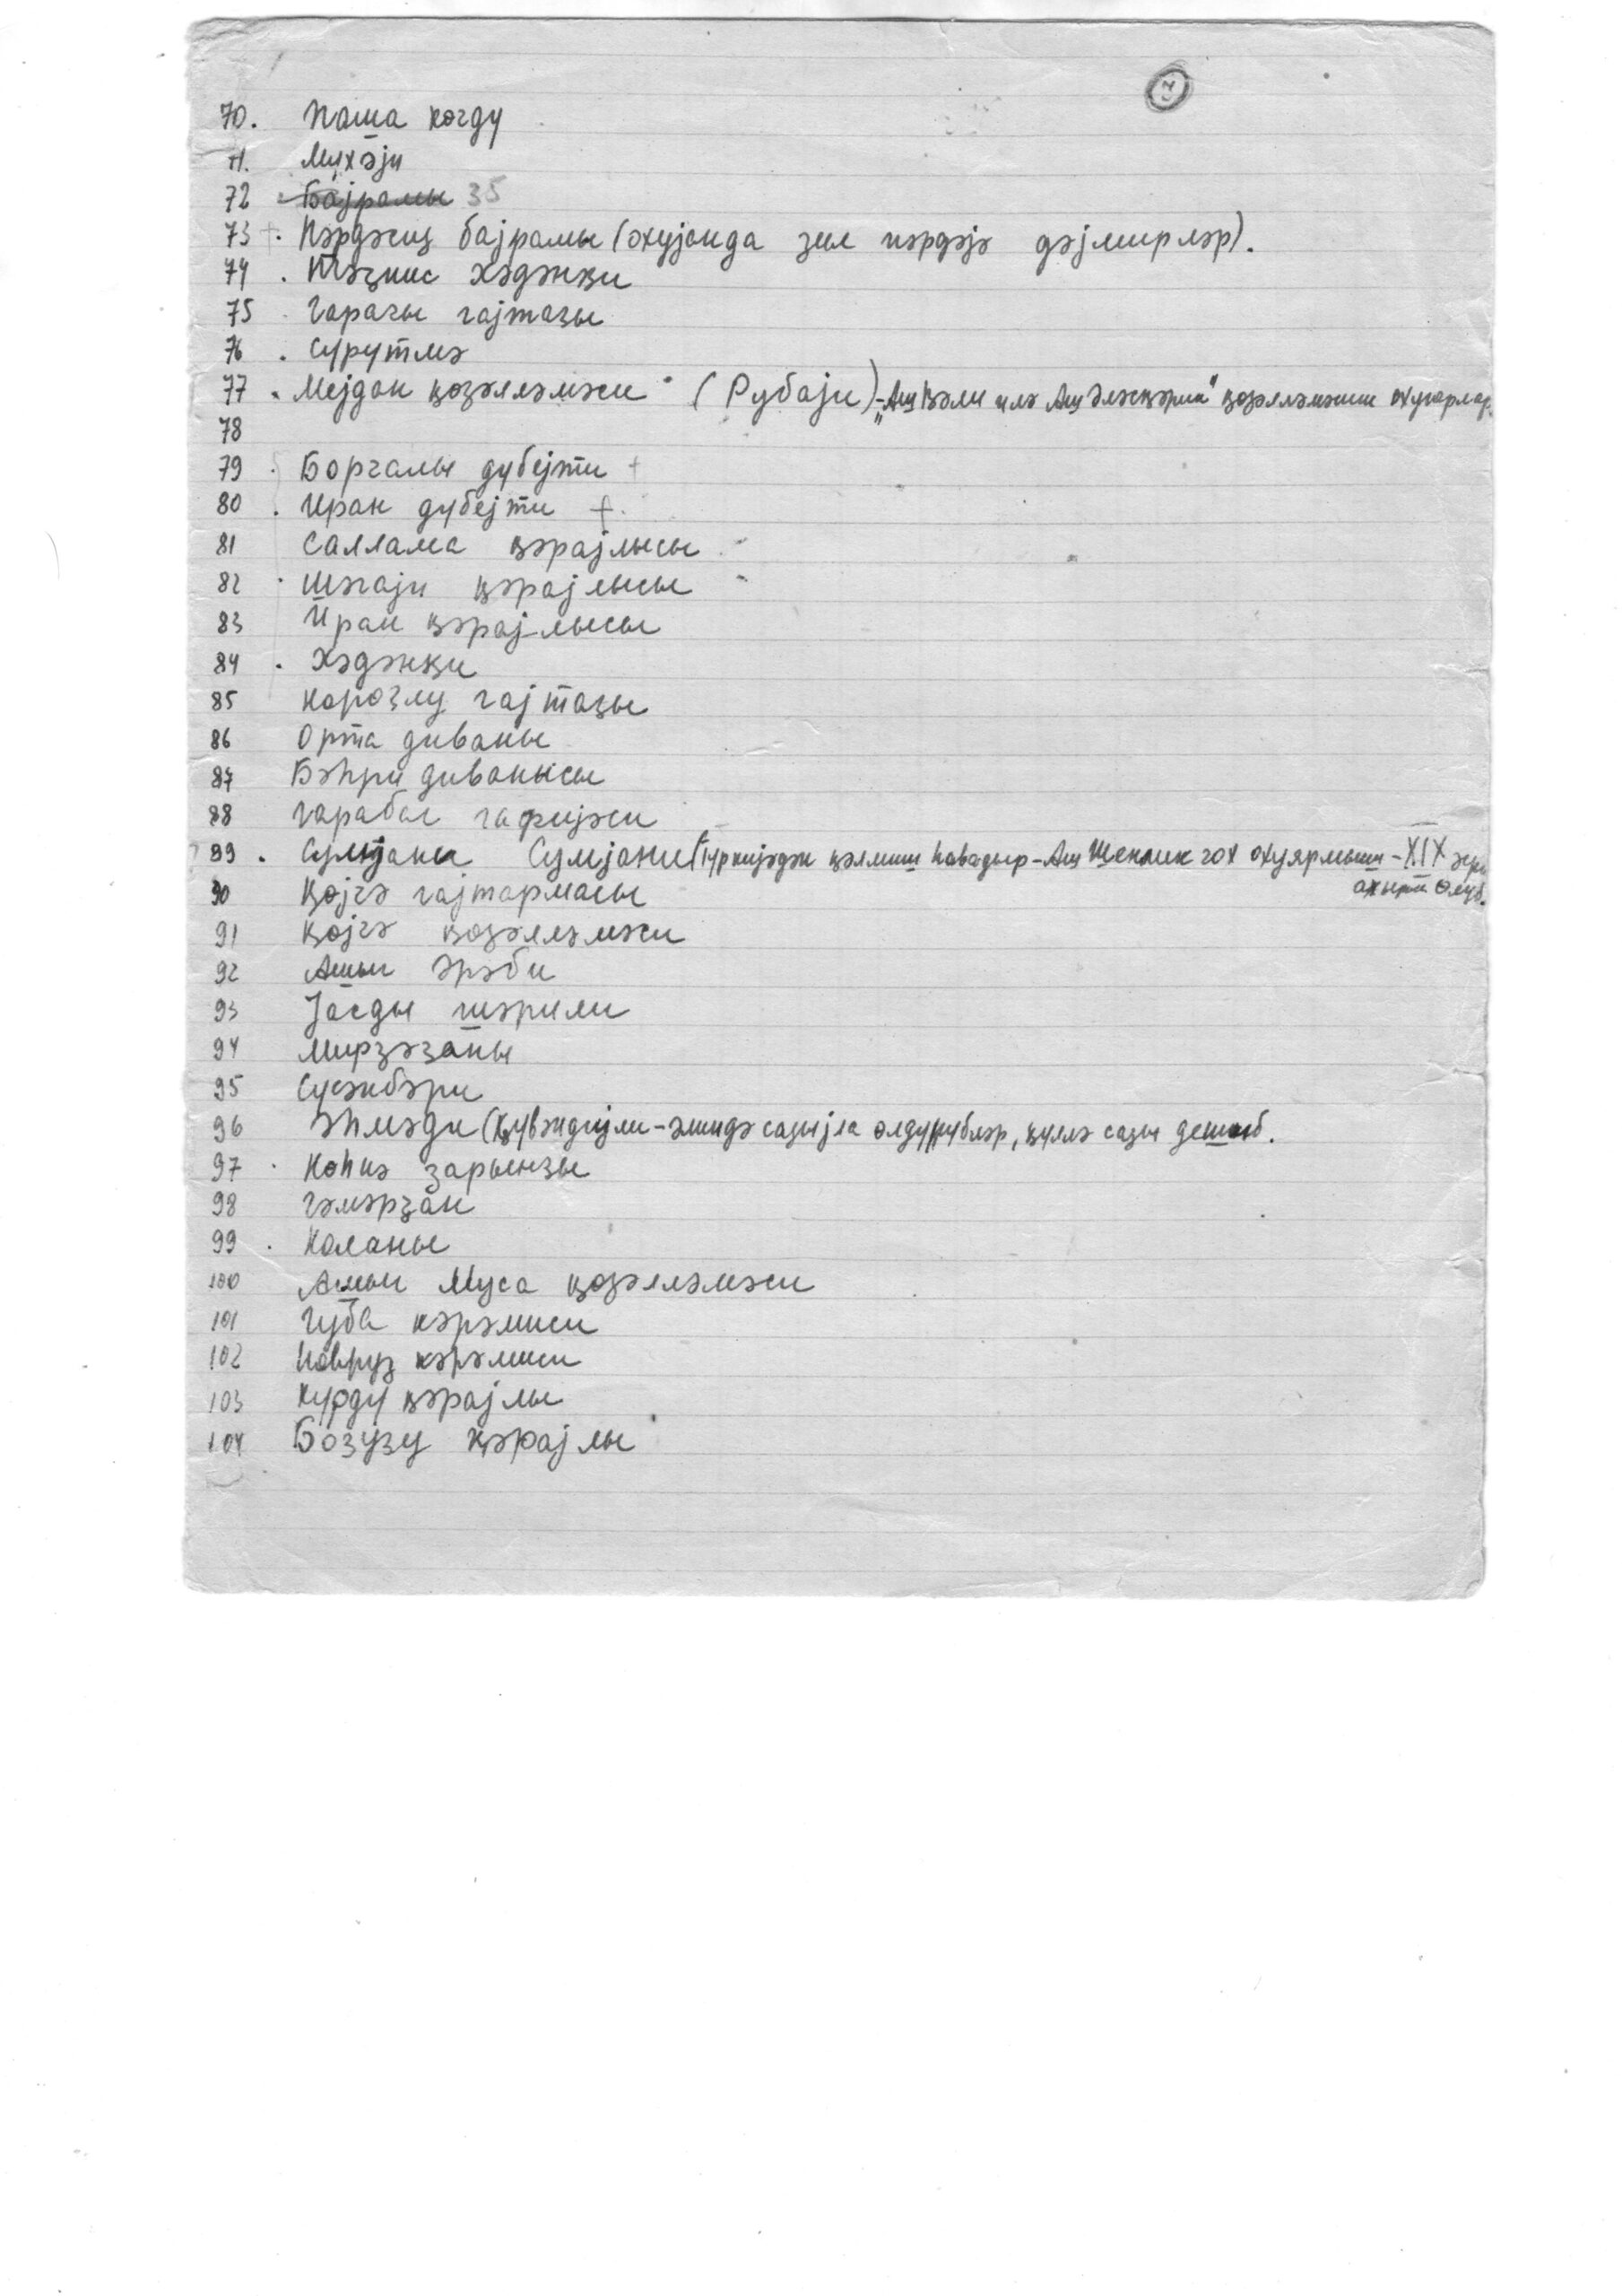 7
70. Паша көчдү
71. Мүхәји
72 Бајрамы 35
73 + . Пәрдәсиз бајрамы (охујанда зил пәрдәјә дәјмирләр).
74 . Тәҹнис Һәдәнҝи
75 . Гарачы гајтағы
76 . Сүрүтмә
77 . Мејдан ҝөзәлләмәси (Рубаји) - „Ашыг Вәли илә Ашыг Әләсҝәрин" ҝөзәлләмәсини охуюрлар.
78
79 . Борчалы дүбејти +
80 . Иран дүбејти +.
81 Саллама ҝәрајлысы
82 . Шәшәји ҝәрајлысы
83 Иран ҝәрајлысы
84 . Хәдәнҝи
85 Короғлу гајтағы
86 Орта диваны
87 Бәһри диванысы
88 Гарабағ гафијәси
89 . Сүмјани Сүмјани (Түркијәдән ҝәлмиш һавадыр - Ашыг Шенлик чох охуярмыш - XIX әсрин
ахыры өлүб.
90 Ҝөјчә гајтармасы
91 Ҝөјчә ҝөзәлләмәси
92 Ашыг Әрәби
93 Јасды шәрили
94 Мирзәҹаны
95 Сүсәнбәри
96 Әһмәди (Ҝүвәндијли - әлиндә сазыјла өлдүрүбләр, ҝүллә сазы дешиб.
97 . Көһнә зарынҹы
98 Гәмәрҹан
99 . Каланы
100 Ашыг Муса ҝөзәлләмәси
101 Губа кәрәмиси
102 Новруз кәрәмиси
103 Күрдү ҝәрајлы
104 Бозуғу ҝәрајлы